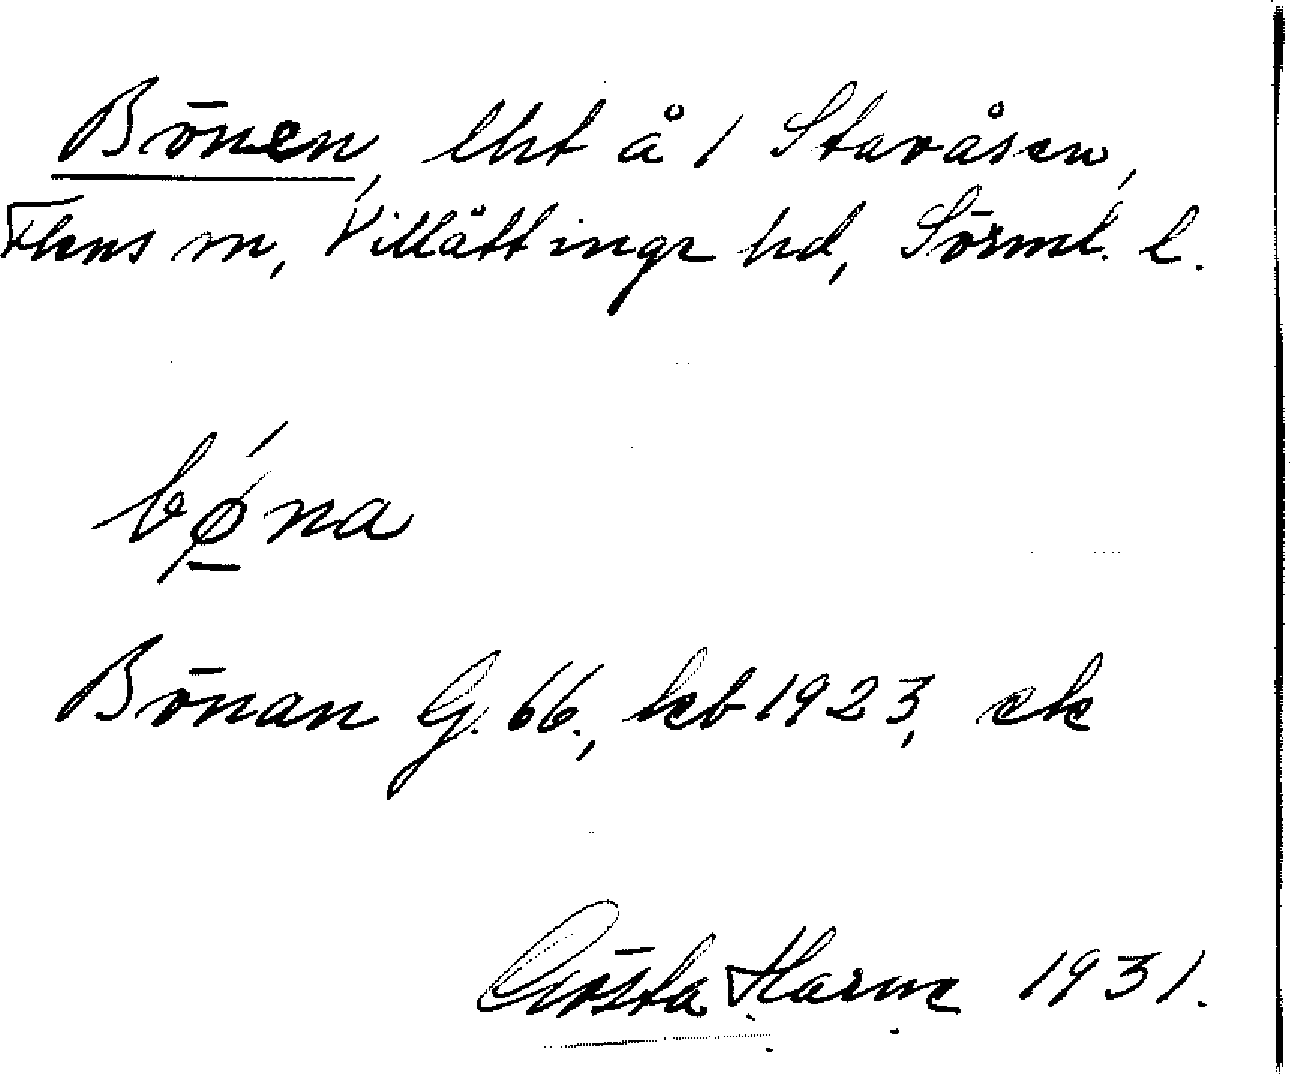 Bönen, lht å 1 Stavåsen,
Flens sn, Villåttinge hd, Sörml. l.
bǿna
Bönan G. 66., kb 1923, ek
Gösta Harm 1931.